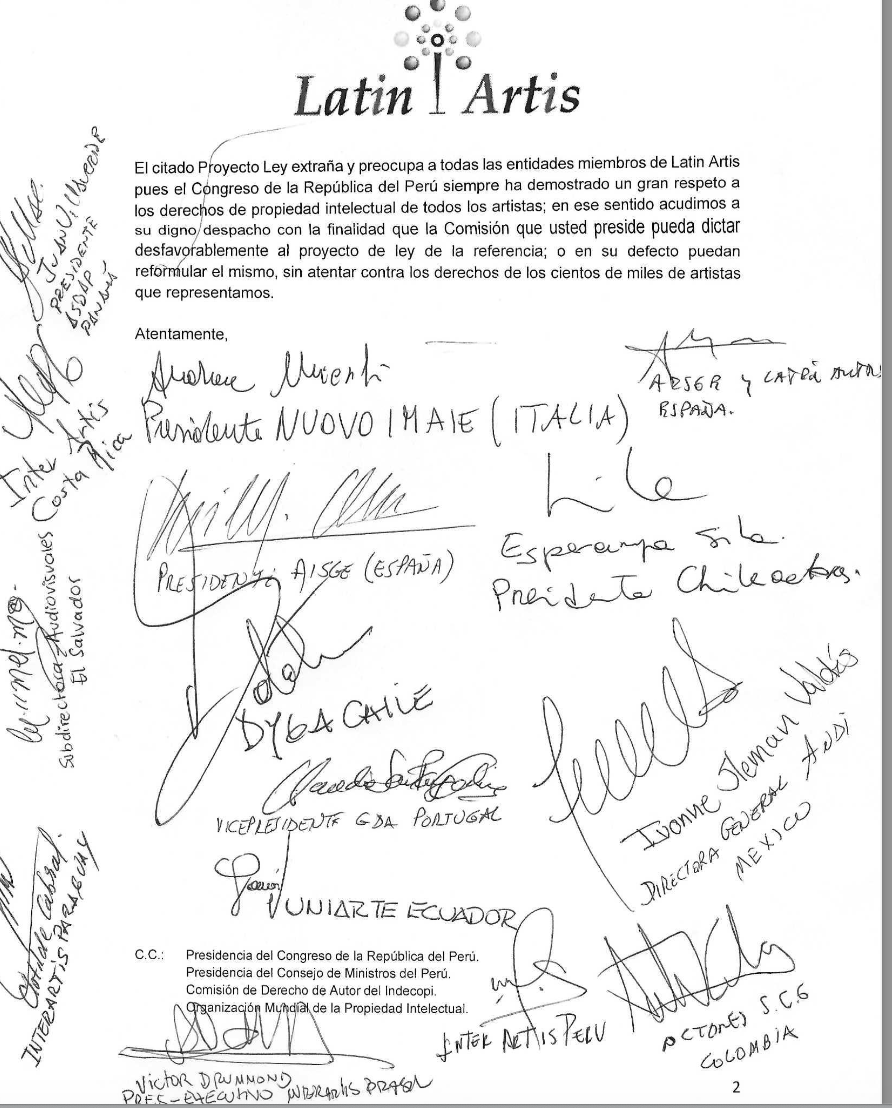 Latin Artis
El citado Proyecto Ley extraña y preocupa a todas las entidades miembros de Latin Artis
pues el Congreso de la República del Perú siempre ha demostrado un gran respeto a
los derechos de propiedad intelectual de todos los artistas; en ese sentido acudimos a
su digno despacho con la finalidad que la Comisión que usted preside pueda dictar
desfavorablemente al proyecto de ley de la referencia; o en su defecto puedan
reformular el mismo, sin atentar contra los derechos de los cientos de miles de artistas
que representamos.
Atentamente,
JUAN VILLAVERDE
PRESIDENTE
ASDAP
PANAMÁ
Inter Artis
Costa Rica
Subdirectora Audiovisuales
El Salvador
Clotilde Cabral.
INTERARTIS PARAGUAY
Presidente NUOVO IMAIE (ITALIA)
ESPAÑA.
PRESIDENTE AISGE (ESPAÑA)
Esperanza Silva
Presidenta Chileactores.
DYGA CHILE
VICEPRESIDENTE GDA PORTUGAL
Ivonne Aleman Valdés
DIRECTORA GENERAL ANDI
MEXICO
UNIARTE ECUADOR
C.C.: Presidencia del Congreso de la República del Perú.
Presidencia del Consejo de Ministros del Perú.
Comisión de Derecho de Autor del Indecopi.
Organización Mundial de la Propiedad Intelectual.
INTER ARTIS PERU
ACTORES S.C.G
COLOMBIA
VICTOR DRUMMOND
PRES-EXECUTIVO INTERARTIS BRASIL
2